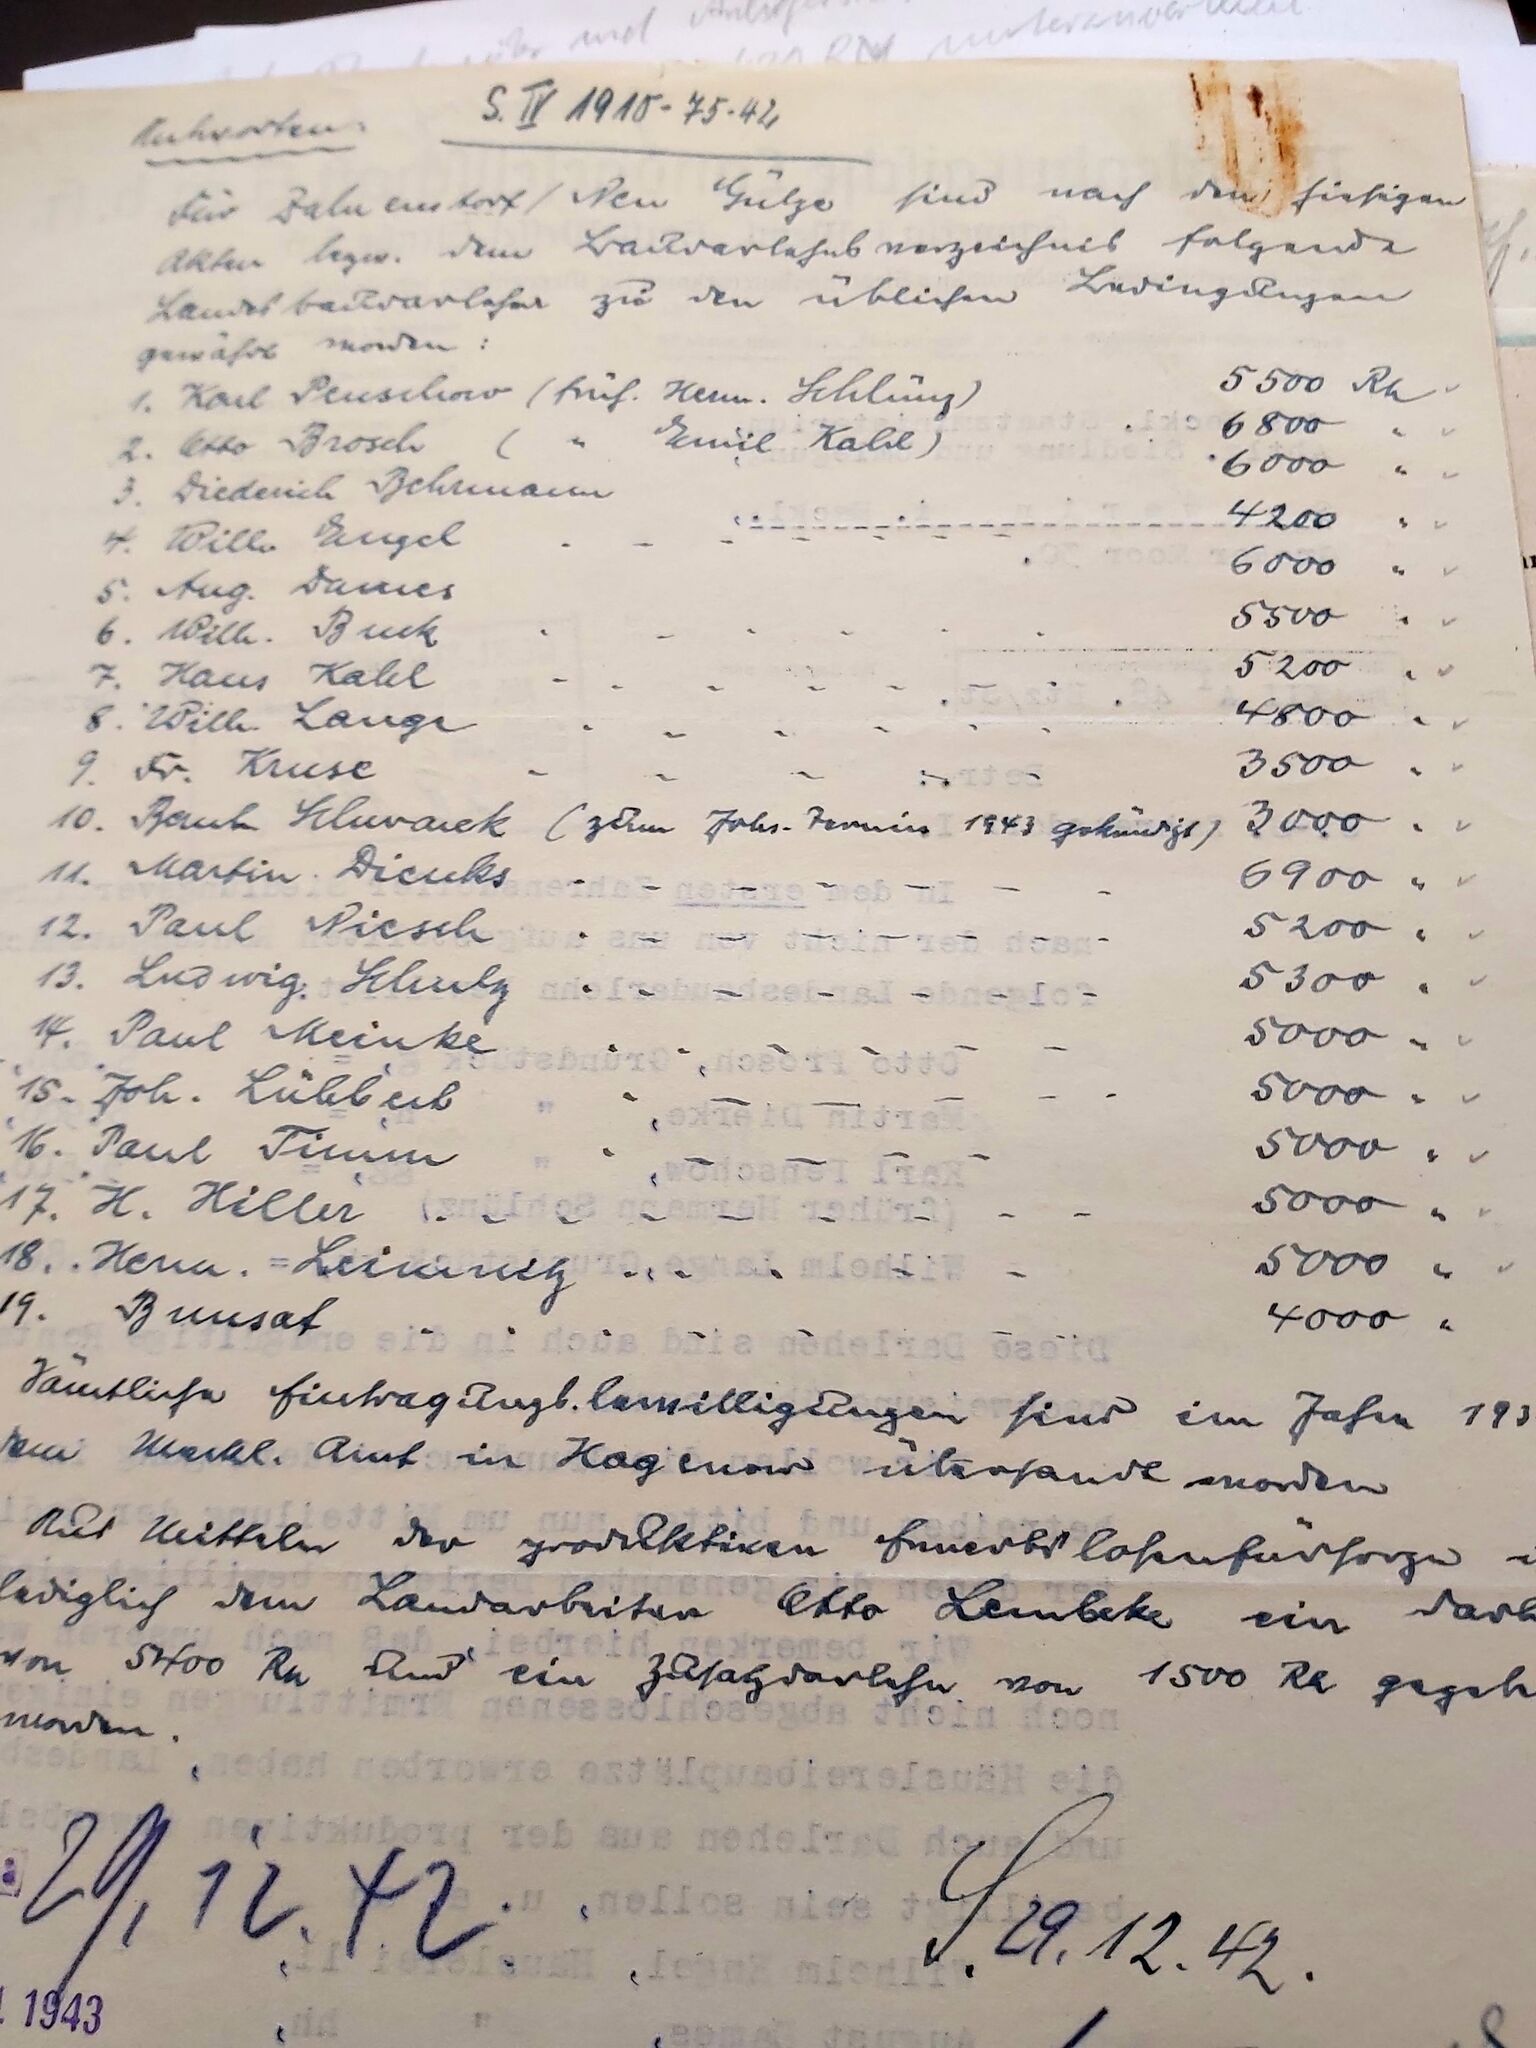 und
S. IV 1910-75-42
Antworten:
Für Dahmenstorf / Neu Gülze sind nach den hiesigen
Akten bezw. dem Baudarlehnsverzeichnis folgende
Landesbaudarlehen zu den üblichen Bedingungen
gewährt worden:
1. Karl Penschow (früh. Herm. Schlünz) 5500 RM
2. Otto Brosch ( " Emil Kahl) 6800 "
3. Diederich Behrmann 6000 "
4. Wilh. Engel - - - - - - 4200 "
5. Aug. Dames 6000 "
6. Wilh. Buck - - - - - - 5500 "
7. Hans Kahl - - - - - - 5200 "
8. Wilh. Lange - - - - - - 4800 "
9. Fr. Kruse - - - - 3500 "
10. Schwarck (zum Johs.-Termin 1943 gekündigt) 3000 "
11. Martin Dierks - - - - - - 6900 "
12. Paul Niesch - - - - - - 5200 "
13. Ludwig Schulz - - - - - - 5300 "
14. Paul Meinke - - - - - - 5000 "
15. Joh. Lübbert - - - - - - 5000 "
16. Paul Timm - - - - - 5000 "
17. H. Hiller - - - - - - - 5000 "
18. Herm. Leimnitz - - - - - 5000 "
19. Brusat - - - - - - 4000 "
Sämtliche Eintragungsbewilligungen sind im Jahre 193
dem Meckl. Amt in Hagenow übersandt worden
Aus Mitteln der produktiven Erwerbslosenfürsorge
lediglich dem Landarbeiter Otto Lembcke ein Darl
von 5400 RM und ein Zusatzdarlehn von 1500 RM gegeb
worden.
29.12.42.
S. 29.12.42.
1943